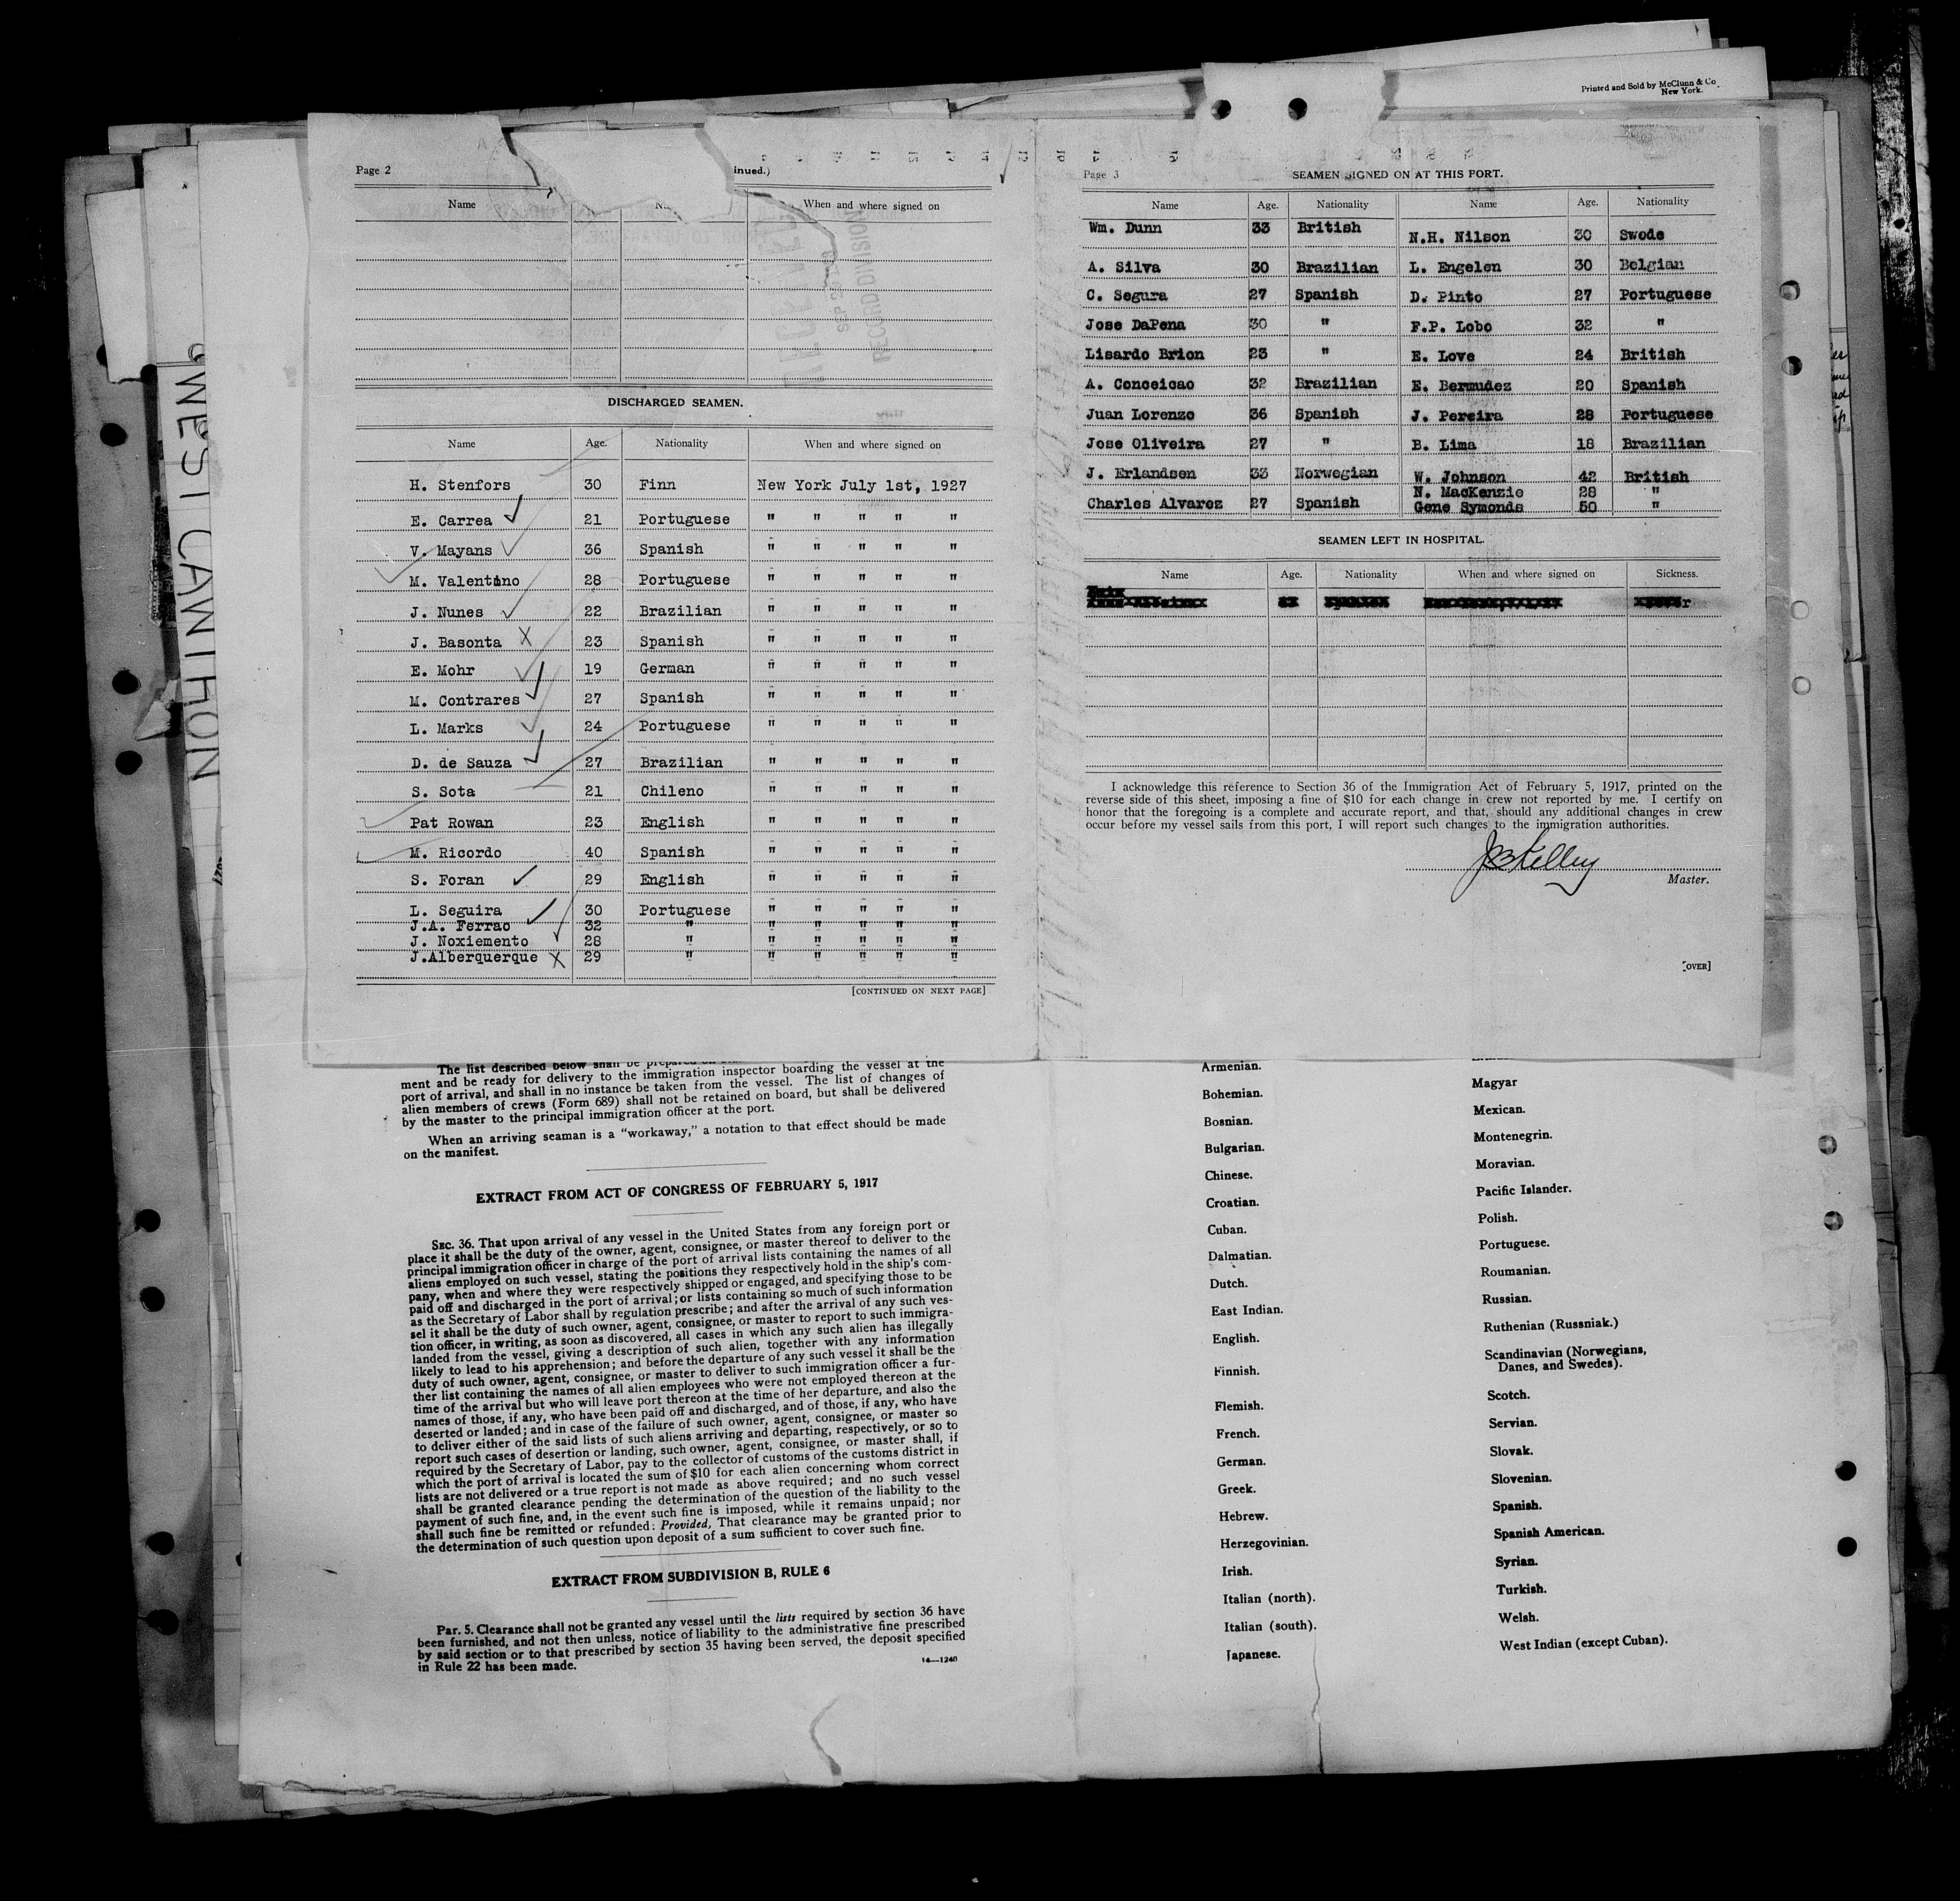 Printed and Sold by McClunn & Co.
New York.
WEST CAWTHON
Page 2
inued.)
Name When and where signed on
RECORD DIVISION
DISCHARGED SEAMEN.
Name Age. Nationality When and where signed on
H. Stenfors 30 Finn New York July 1st, 1927
E. Carrea ✓ 21 Portuguese " " " " "
V. Mayans ✓ 36 Spanish " " " " "
✓ M. Valentino 28 Portuguese " " " " "
J. Nunes ✓ 22 Brazilian " " " " "
J. Basonta X 23 Spanish " " " " "
E. Mohr ✓ 19 German " " " " "
M. Contrares ✓ 27 Spanish " " " " "
L. Marks ✓ 24 Portuguese " " " " "
D. de Sauza ✓ 27 Brazilian " " " " "
S. Sota 21 Chileno " " " " "
✓ Pat Rowan 23 English " " " " "
✓ M. Ricordo 40 Spanish " " " " "
S. Foran ✓ 29 English " " " " "
L. Seguira ✓ 30 Portuguese " " " " "
J.A. Ferrao 32 " " " " " "
J. Noxiemento ✓ 28 " " " " " "
J.Alberquerque X 29 " " " " " "
[CONTINUED ON NEXT PAGE]
Page 3
SEAMEN SIGNED ON AT THIS PORT.
Name Age. Nationality Name Age. Nationality
Wm. Dunn 33 British N.H. Nilson 30 Swede
A. Silva 30 Brazilian L. Engelen 30 Belgian
C. Segura 27 Spanish D. Pinto 27 Portuguese
Jose DaPena 30 " F.P. Lobo 32 "
Lisardo Brion 23 " E. Love 24 British
A. Conceicao 32 Brazilian E. Bermudez 20 Spanish
Juan Lorenzo 36 Spanish J. Pereira 28 Portuguese
Jose Oliveira 27 " B. Lima 18 Brazilian
J. Erlandsen 33 Norwegian W. Johnson 42 British
N. MacKenzie 28 "
Charles Alvarez 27 Spanish Gene Symonds 50 "
SEAMEN LEFT IN HOSPITAL.
Name Age. Nationality When and where signed on Sickness.
I acknowledge this reference to Section 36 of the Immigration Act of February 5, 1917, printed on the
reverse side of this sheet, imposing a fine of $10 for each change in crew not reported by me. I certify on
honor that the foregoing is a complete and accurate report, and that, should any additional changes in crew
occur before my vessel sails from this port, I will report such changes to the immigration authorities.
JB Kelley
Master.
[OVER]
The list described below shall be prepared
ment and be ready for delivery to the immigration inspector boarding the vessel at the
port of arrival, and shall in no instance be taken from the vessel. The list of changes of
alien members of crews (Form 689) shall not be retained on board, but shall be delivered
by the master to the principal immigration officer at the port.
When an arriving seaman is a "workaway," a notation to that effect should be made
on the manifest.
EXTRACT FROM ACT OF CONGRESS OF FEBRUARY 5, 1917
SEC. 36. That upon arrival of any vessel in the United States from any foreign port or
place it shall be the duty of the owner, agent, consignee, or master thereof to deliver to the
principal immigration officer in charge of the port of arrival lists containing the names of all
aliens employed on such vessel, stating the positions they respectively hold in the ship's com-
pany, when and where they were respectively shipped or engaged, and specifying those to be
paid off and discharged in the port of arrival; or lists containing so much of such information
as the Secretary of Labor shall by regulation prescribe; and after the arrival of any such ves-
sel it shall be the duty of such owner, agent, consignee, or master to report to such immigra-
tion officer, in writing, as soon as discovered, all cases in which any such alien has illegally
landed from the vessel, giving a description of such alien, together with any information
likely to lead to his apprehension; and before the departure of any such vessel it shall be the
duty of such owner, agent, consignee, or master to deliver to such immigration officer a fur-
ther list containing the names of all alien employees who were not employed thereon at the
time of the arrival but who will leave port thereon at the time of her departure, and also the
names of those, if any, who have been paid off and discharged, and of those, if any, who have
deserted or landed; and in case of the failure of such owner, agent, consignee, or master so
to deliver either of the said lists of such aliens arriving and departing, respectively, or so to
report such cases of desertion or landing, such owner, agent, consignee, or master shall, if
required by the Secretary of Labor, pay to the collector of customs of the customs district in
which the port of arrival is located the sum of $10 for each alien concerning whom correct
lists are not delivered or a true report is not made as above required; and no such vessel
shall be granted clearance pending the determination of the question of the liability to the
payment of such fine, and, in the event such fine is imposed, while it remains unpaid; nor
shall such fine be remitted or refunded: Provided, That clearance may be granted prior to
the determination of such question upon deposit of a sum sufficient to cover such fine.
EXTRACT FROM SUBDIVISION B, RULE 6
Par. 5. Clearance shall not be granted any vessel until the lists required by section 36 have
been furnished, and not then unless, notice of liability to the administrative fine prescribed
by said section or to that prescribed by section 35 having been served, the deposit specified
in Rule 22 has been made.
14—1240
Armenian.
Bohemian.
Bosnian.
Bulgarian.
Chinese.
Croatian.
Cuban.
Dalmatian.
Dutch.
East Indian.
English.
Finnish.
Flemish.
French.
German.
Greek.
Hebrew.
Herzegovinian.
Irish.
Italian (north).
Italian (south).
Japanese.
Magyar
Mexican.
Montenegrin.
Moravian.
Pacific Islander.
Polish.
Portuguese.
Roumanian.
Russian.
Ruthenian (Russniak.)
Scandinavian (Norwegians,
Danes, and Swedes).
Scotch.
Servian.
Slovak.
Slovenian.
Spanish.
Spanish American.
Syrian.
Turkish.
Welsh.
West Indian (except Cuban).